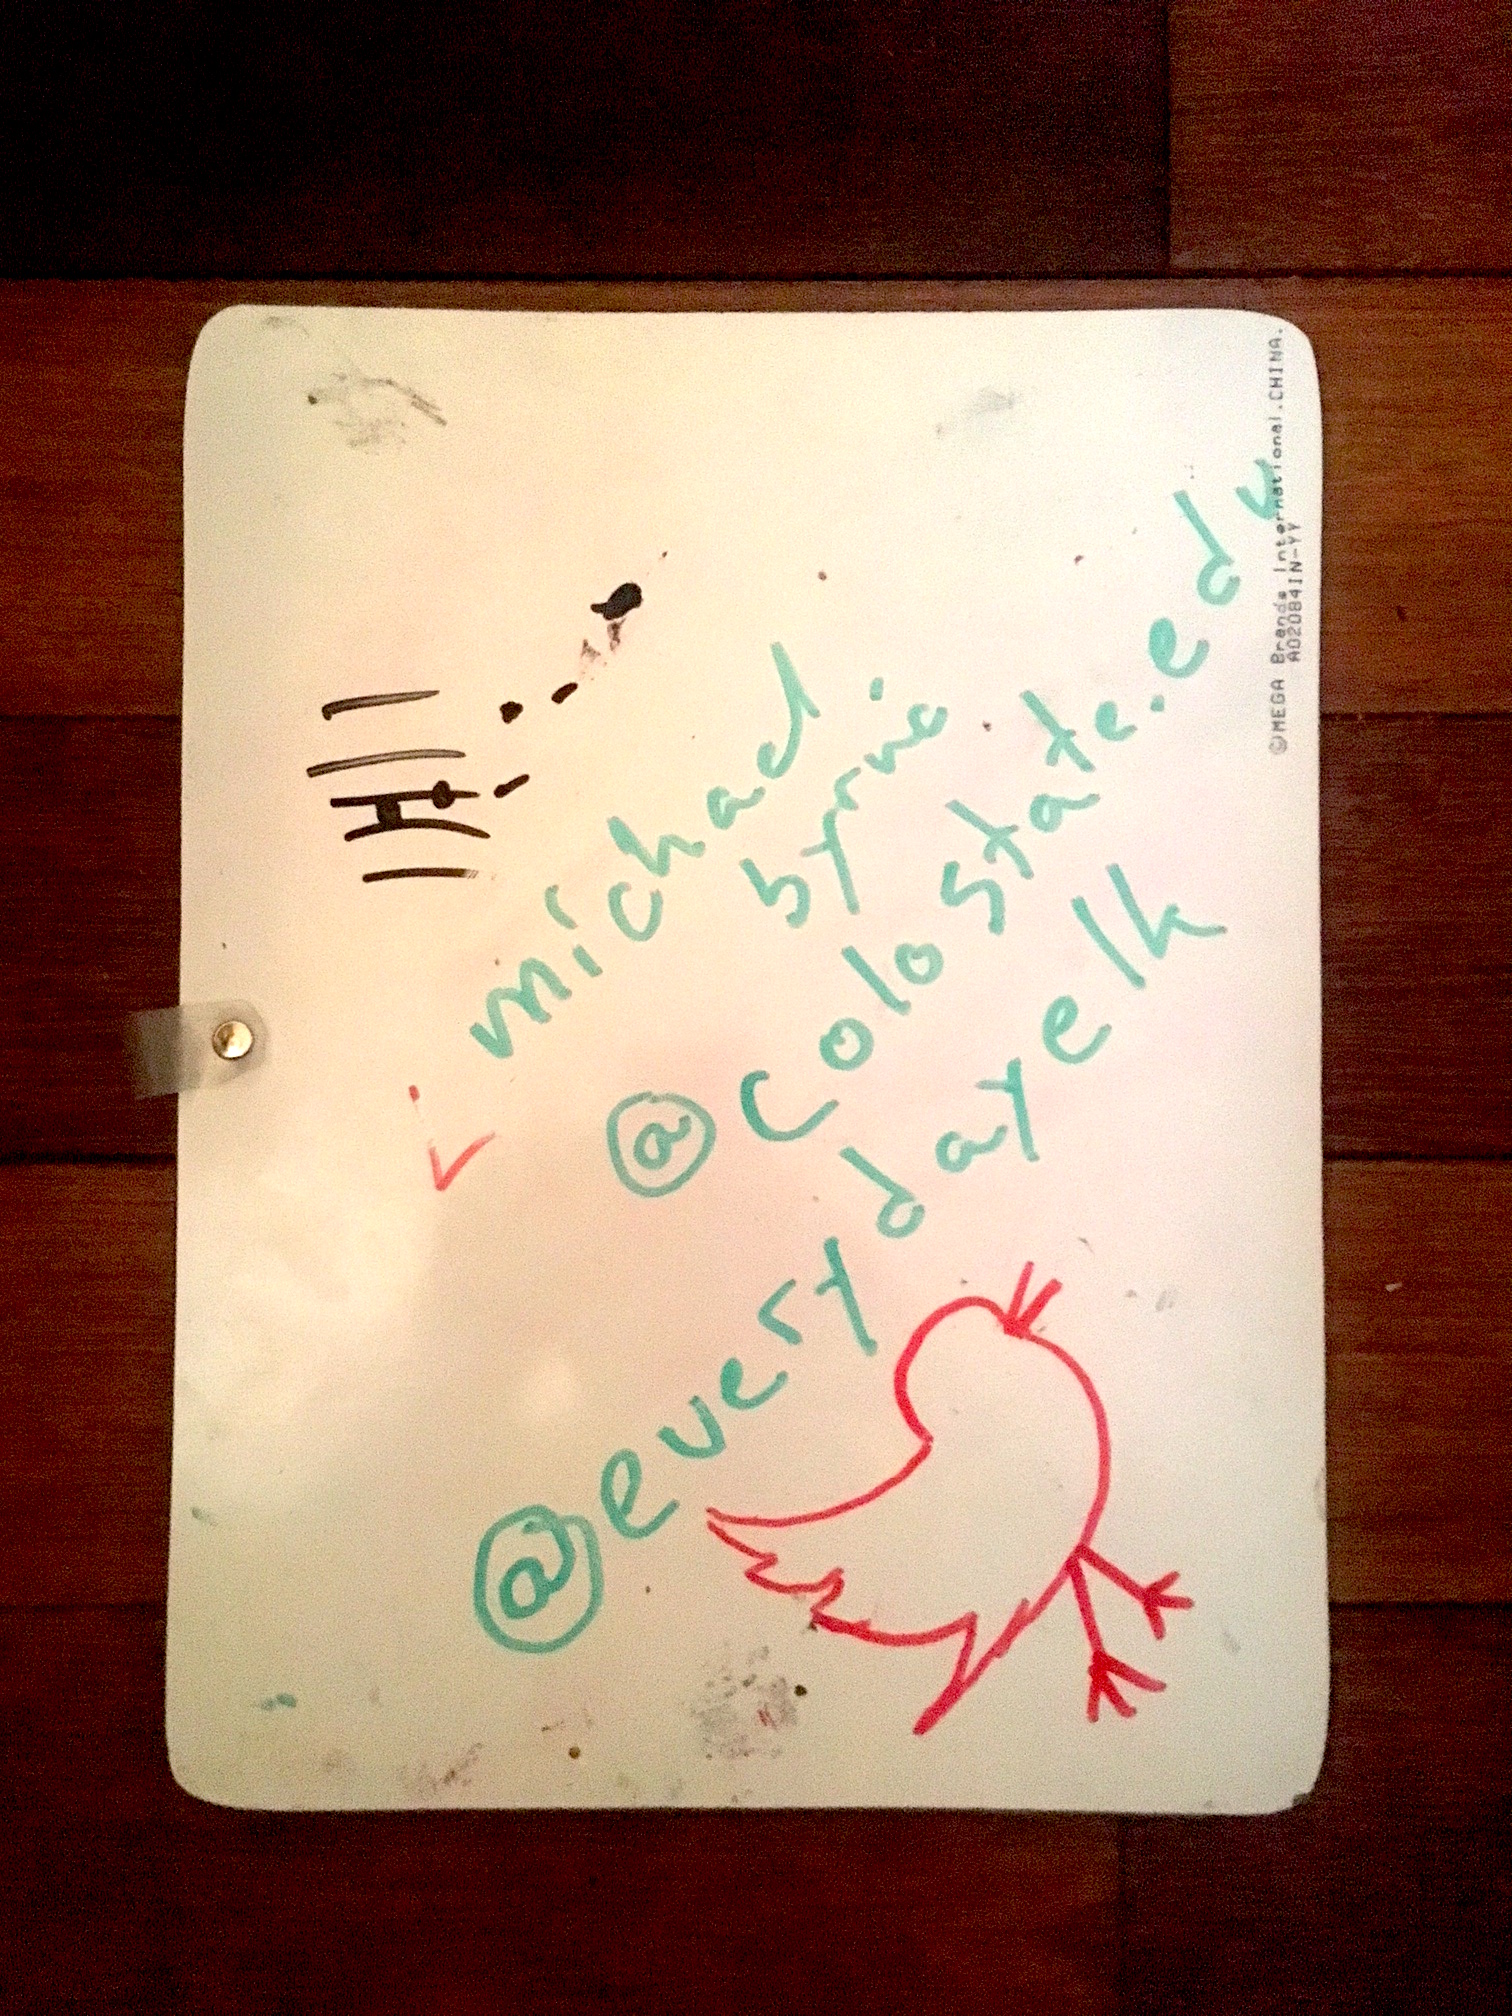 michael
byrne
@colostate.edu
@everydayelk
©MEGA Brands International.CHINA.
A02084IN-YY